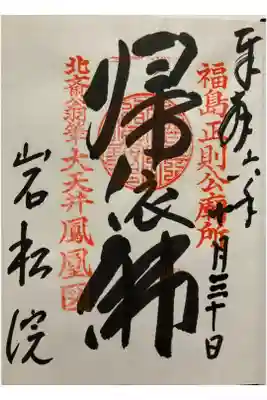 福島正則公廟所
年十月三十日
帰依佛
北斎翁筆大天井鳳凰図
岩松院